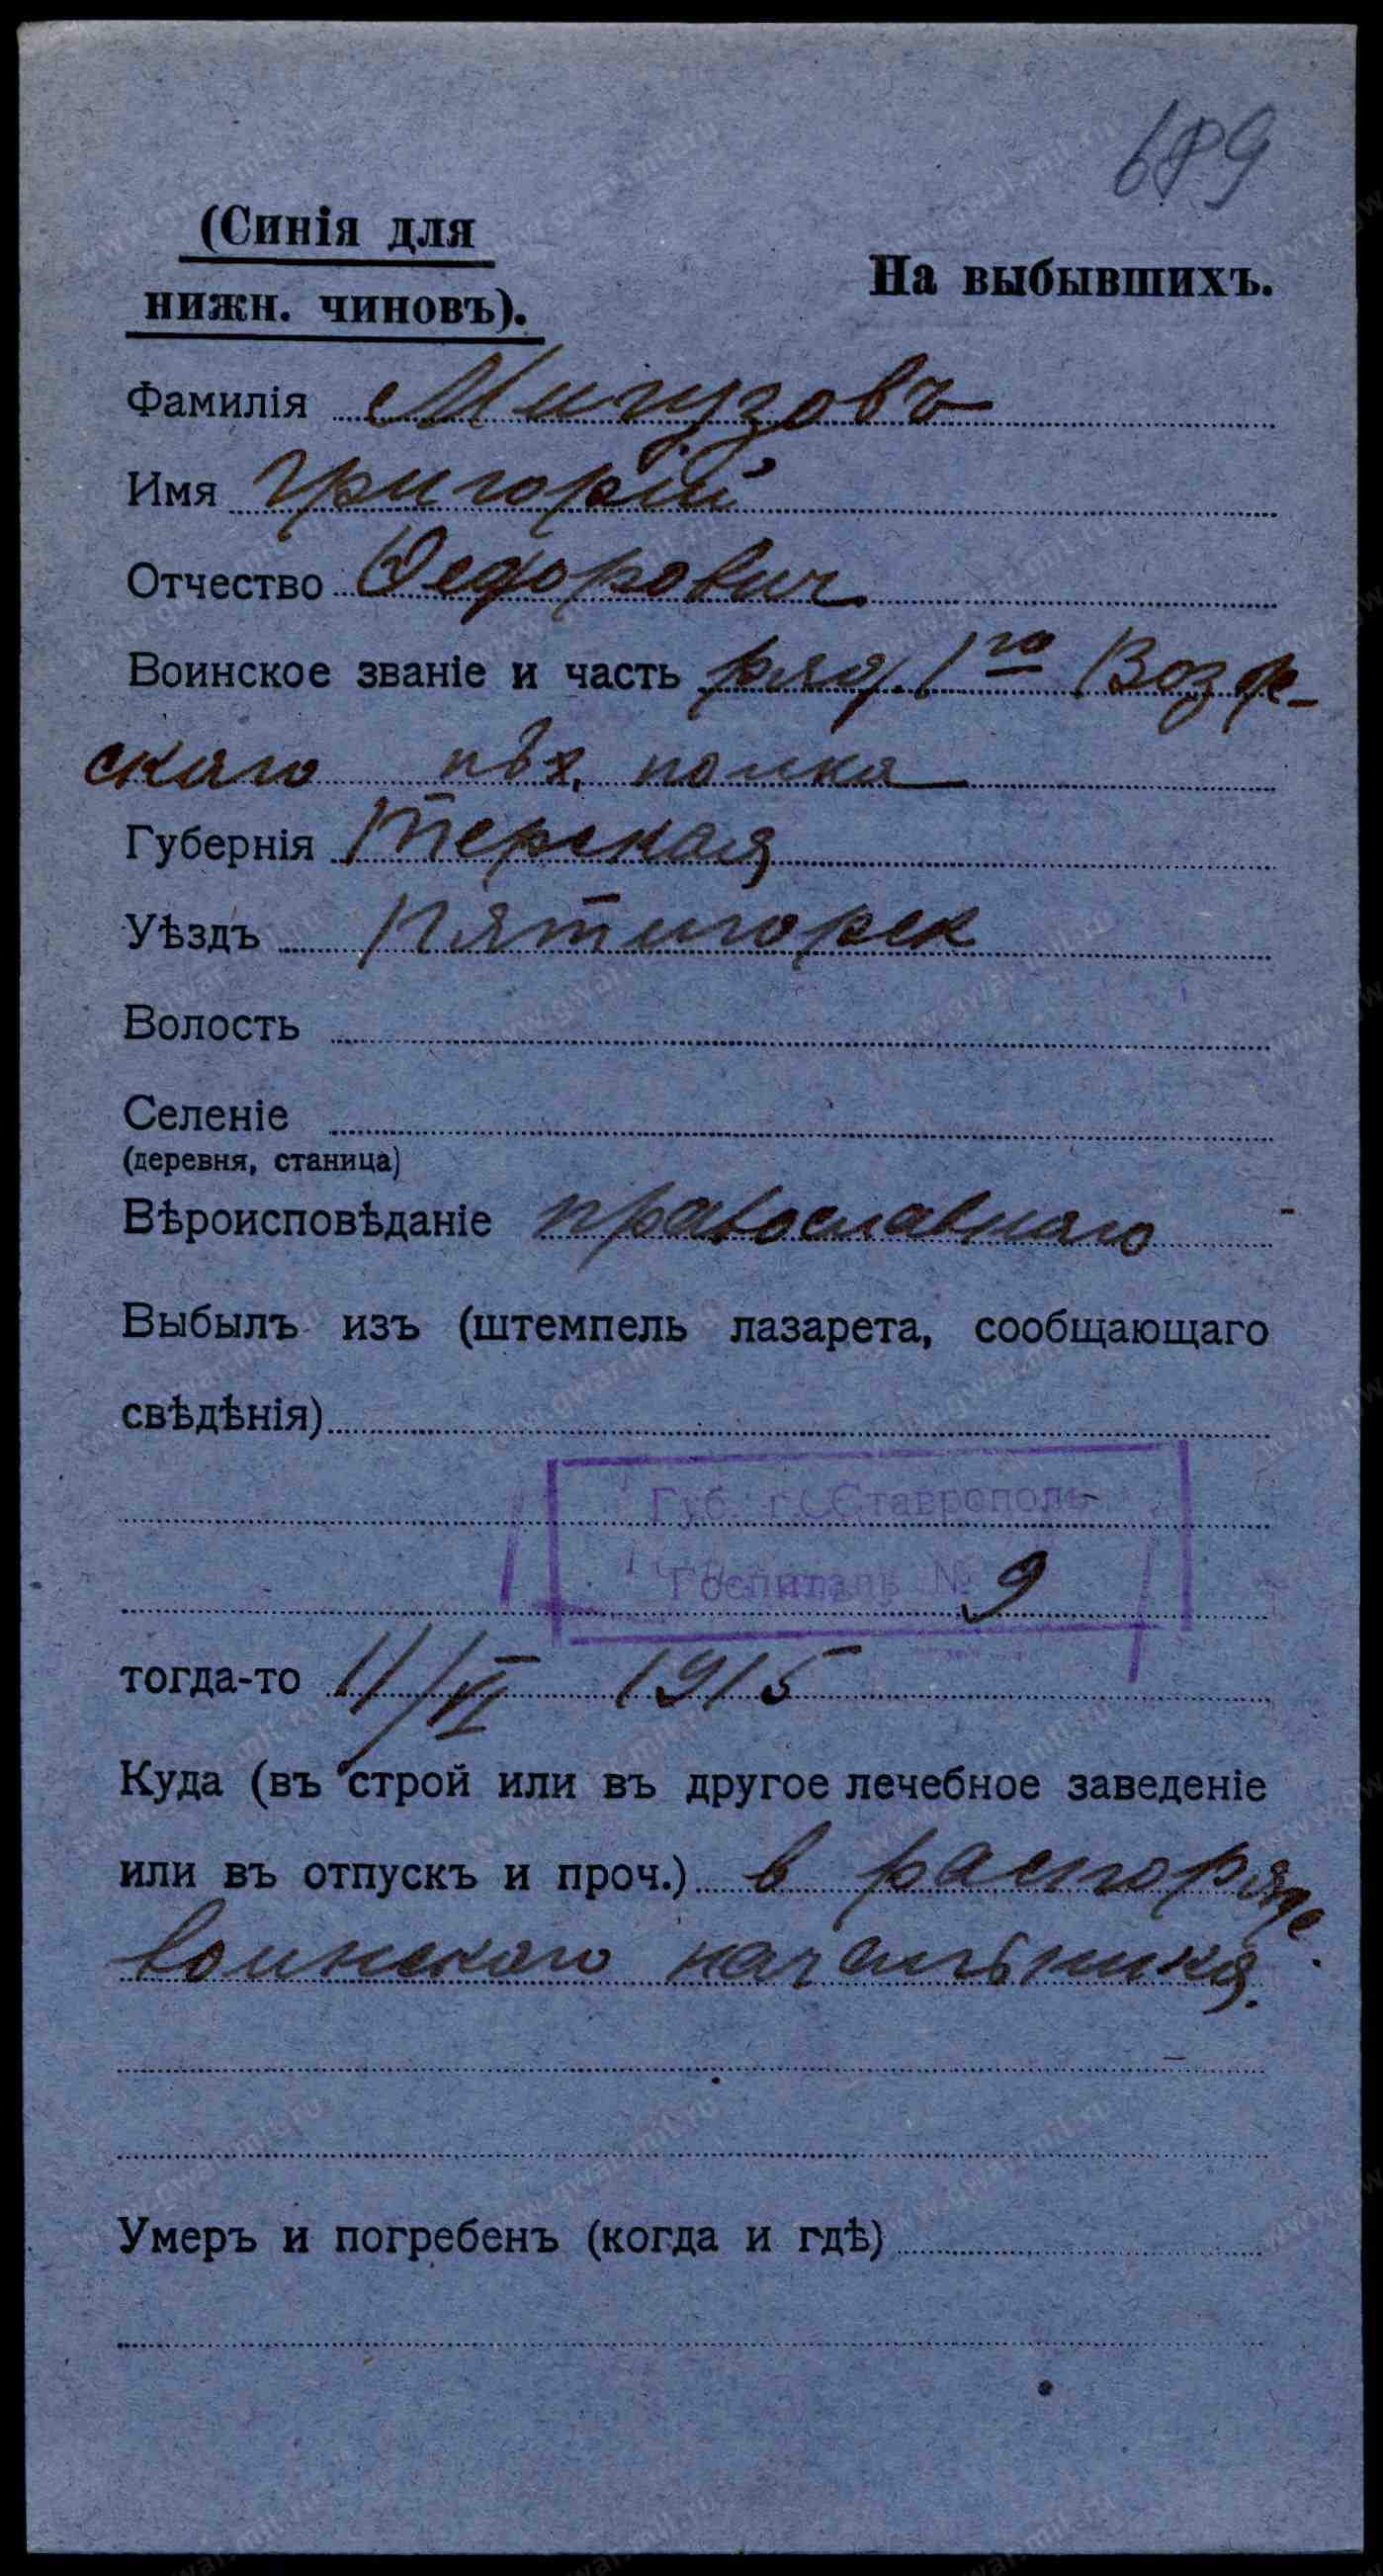 689
(Синія для
нижн. чиновъ).
На выбывшихъ.
Фамилія Мигузовъ
Имя Григорій
Отчество Федорович
Воинское званіе и часть ряд. 1го
скаго пѣх. полка
Губернія Терская
Уѣздъ Пятигорск
Волость
Селеніе
(деревня, станица)
Вѣроисповѣданіе православнаго
Выбылъ изъ (штемпель лазарета, сообщающаго
свѣдѣнія)
Губ. г. Ставрополь
Госпиталь № 9
тогда-то 11/VI 1915
Куда (въ строй или въ другое лечебное заведеніе
или въ отпускъ и проч.) в распоряже
воинского начальника.
Умеръ и погребенъ (когда и гдѣ)